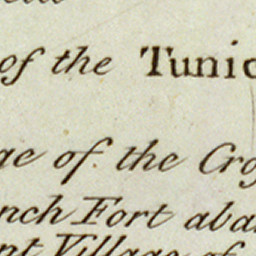 of the Tunic
ge of the Cro
nch Fort aba
nt Village of